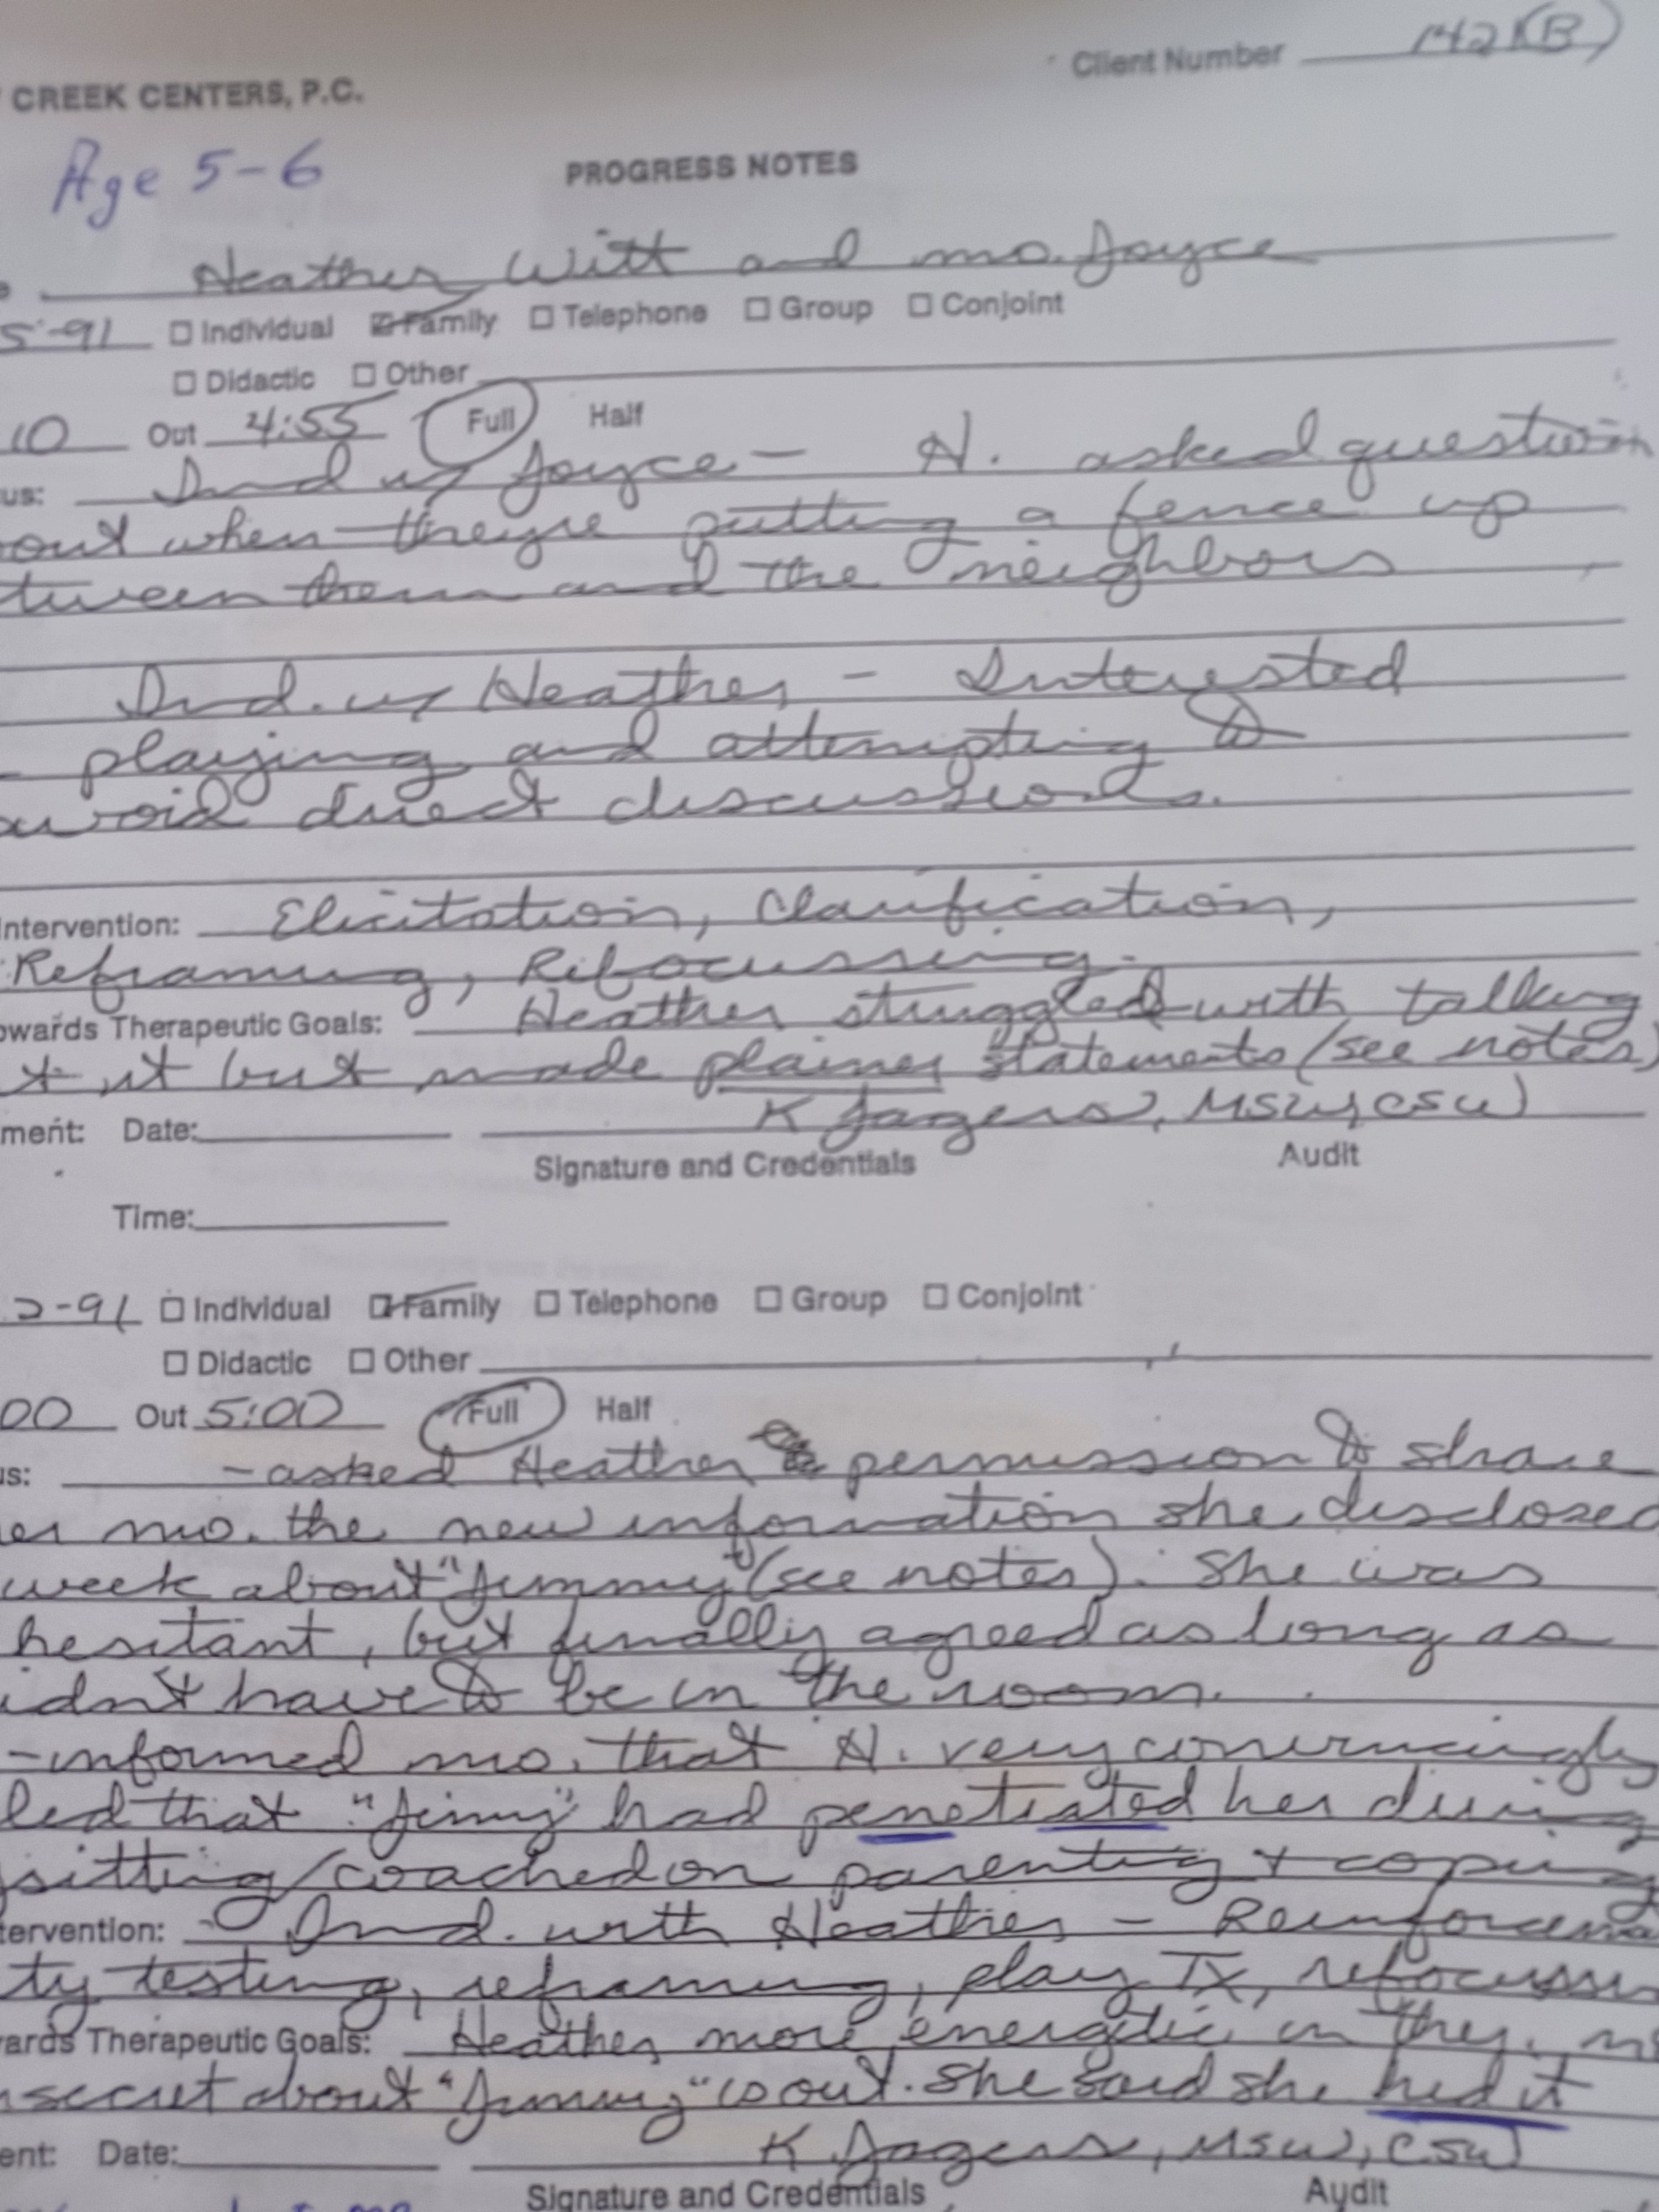 Client Number 142(B)
CREEK CENTERS, P.C.
Age 5-6
PROGRESS NOTES
Heather Witt and mo. Joyce
5-91 ☐ Individual ☑ Family ☐ Telephone ☐ Group ☐ Conjoint
☐ Didactic ☐ Other
10 Out 4:55 Full Half
us: Ind w/ Joyce - H. asked question
out when they're putting a fence up
tween them and the neighbors
Ind. w/ Heather - Interested
playing and attempting to
avoid direct discussions.
Intervention: Elicitation, Clarification,
Reframing, Refocussing.
owards Therapeutic Goals: Heather struggled with talking
t it but made plainer statements (see notes)
ment: Date: K Jagers, MSW, CSW
Signature and Credentials Audit
Time:
2-91 ☐ Individual ☑ Family ☐ Telephone ☐ Group ☐ Conjoint
☐ Didactic ☐ Other
00 Out 5:00 Full Half
us: - asked Heather permission to share
er mo. the new information she disclosed
week about "Jimmy" (see notes). She was
hesitant, but finally agreed as long as
idn't have to be in the room.
- informed mo. that H. very convincingly
led that "Jimmy" had penetrated her during
sitting/coached on parenting + coping
tervention: - Ind. with Heather - Reinforceme
ty testing, reframing, play Tx, refocussin
wards Therapeutic Goals: Heather more energetic in they.
secret about "Jimmy" is out. She said she hid it
ent: Date: K Jagers, MSW, CSW
Signature and Credentials Audit